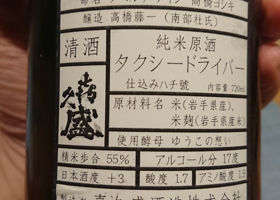 高橋ヨシキ
醸造 高橋藤一(南部杜氏)
清酒
喜久盛
純米原酒
タクシードライバー
仕込みハチ號 内容量 720ml
原材料名 米(岩手県産)、
米麹(岩手県産)
使用酵母 ゆうこの想い
精米歩合 55% アルコール分 17度
日本酒度 +3 酸度 1.7 アミノ酸度 1.9